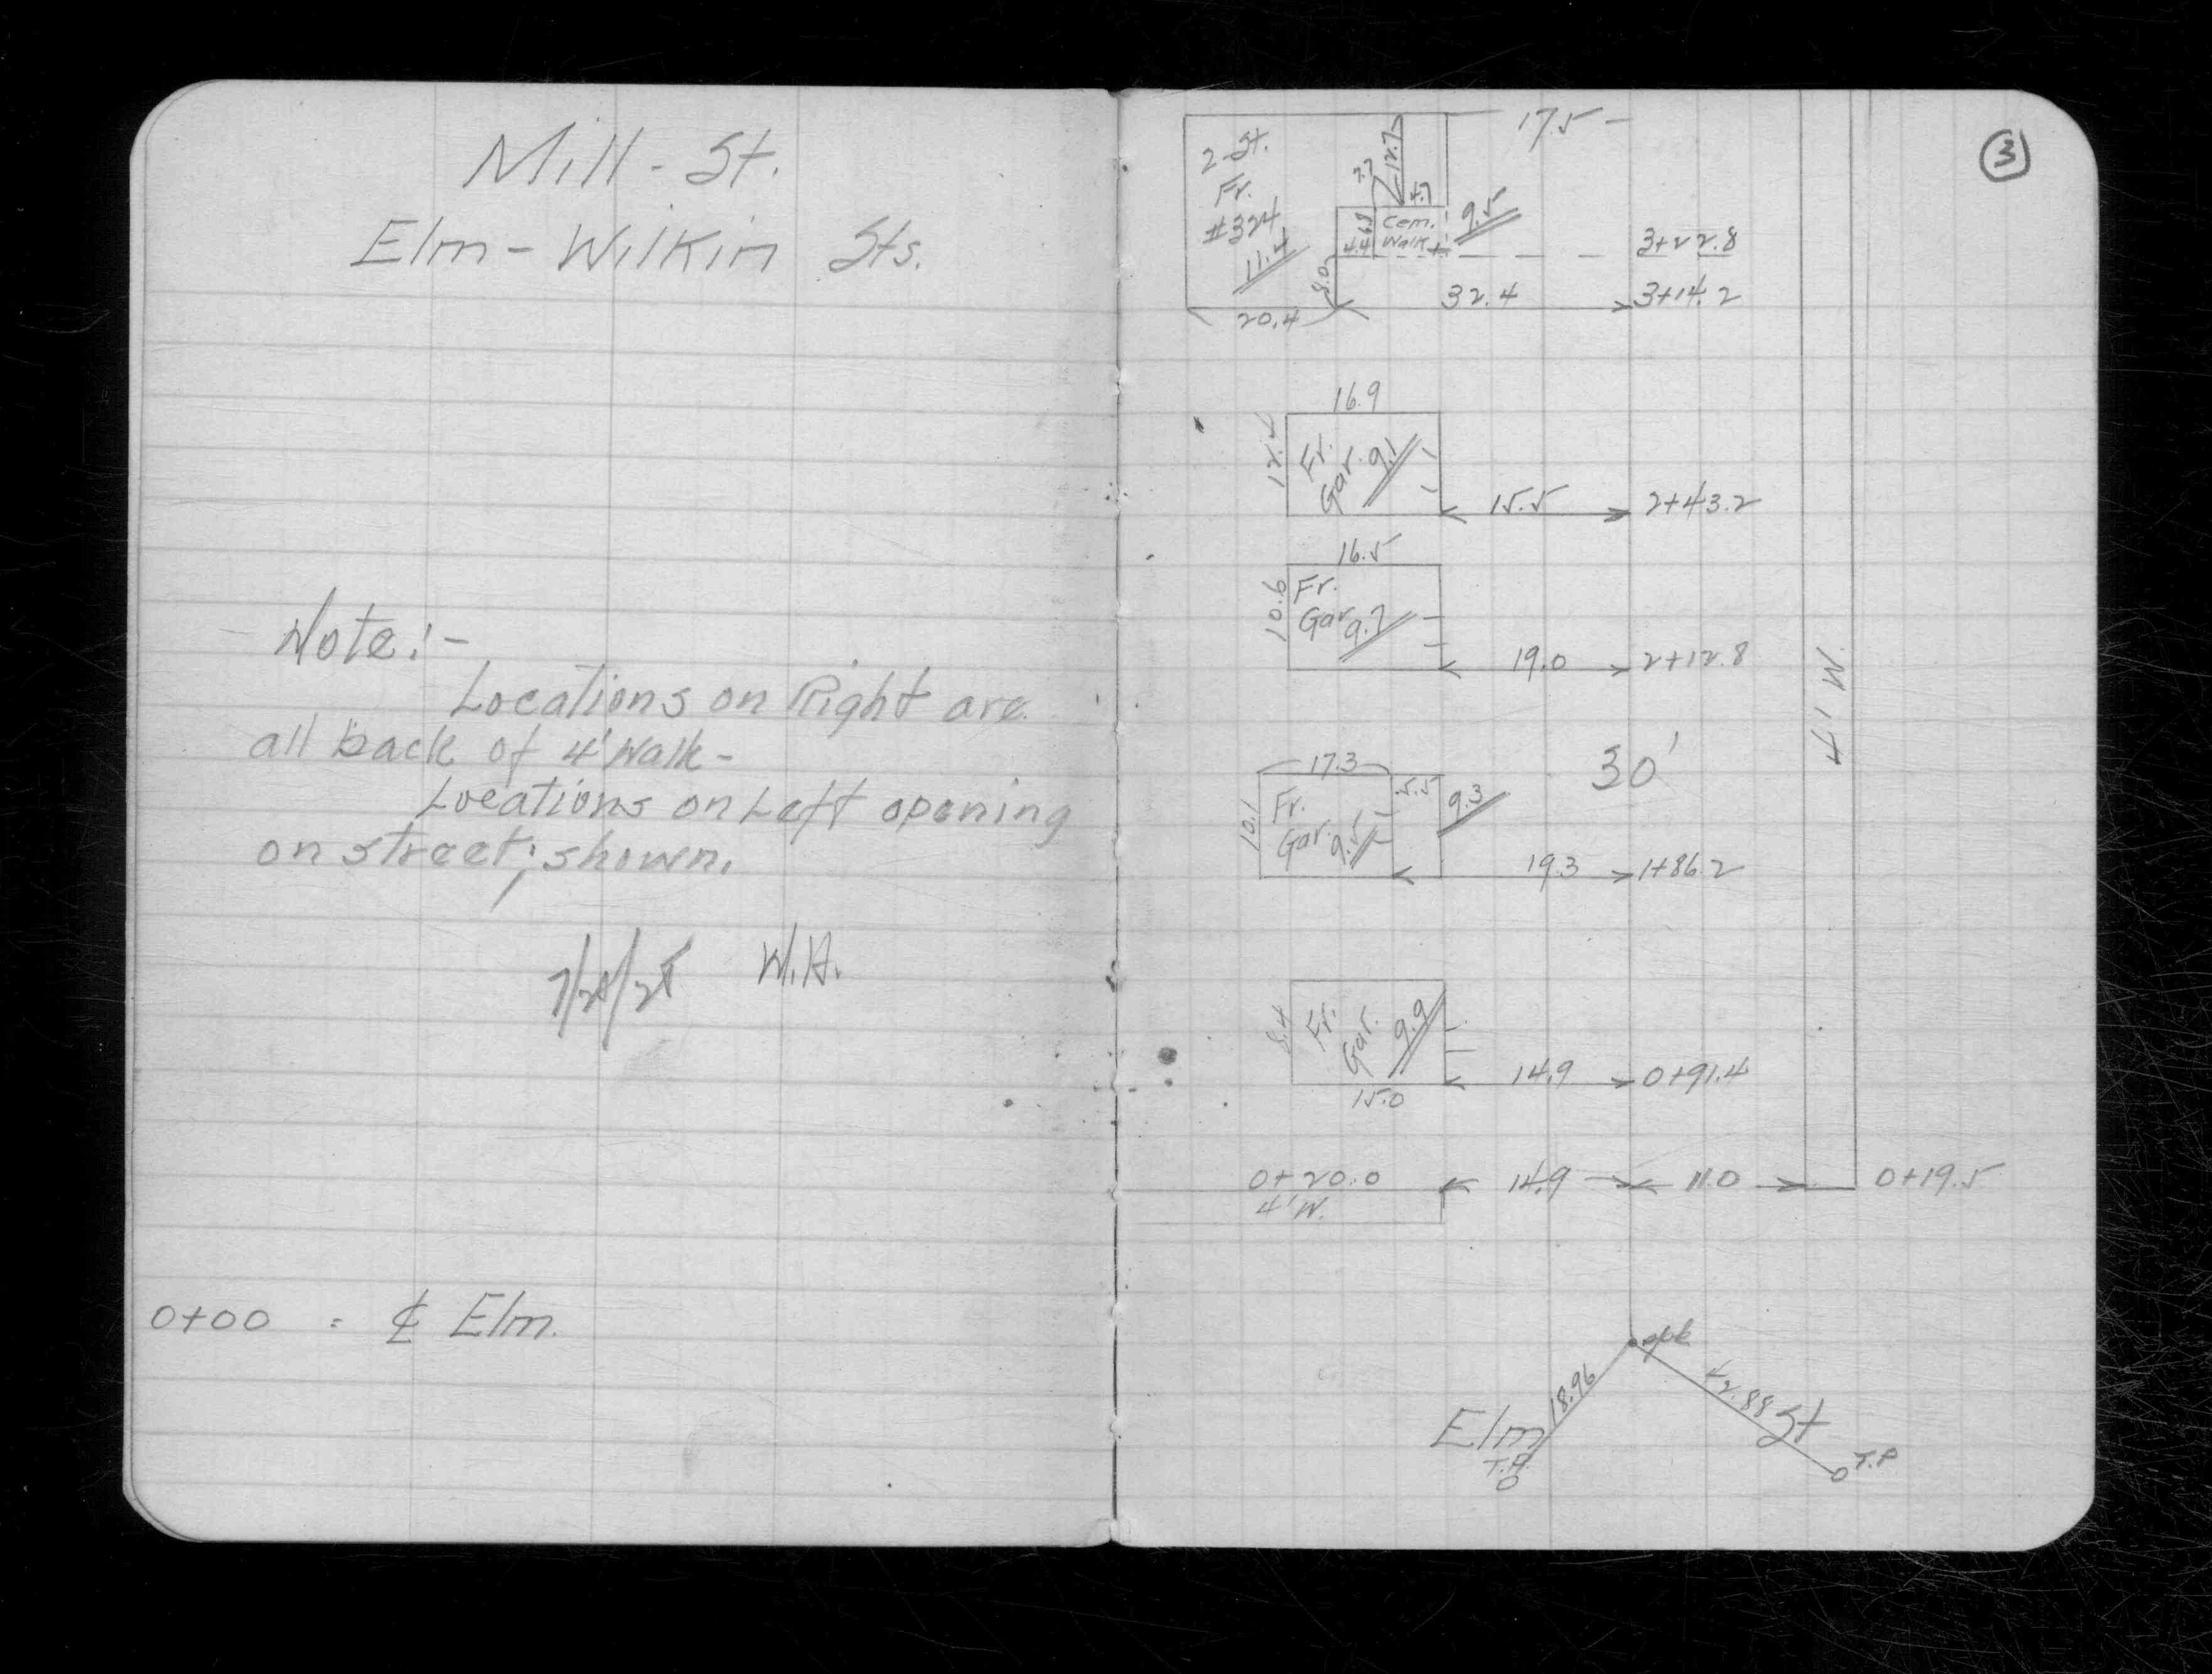 Mill - St.
Elm - Wilkin Sts.
Note:-
Locations on Right are
all back of 4' Walk -
Locations on Left opening
on street; shown.
W.H.
0+00 = ℄ Elm.
3
17.5
2-St.
Fr.
#324
11.4
12.7
7.7
4.7
6.8
4.4
Cem.
Walk
9.5
3+22.8
8.0
32.4
3+14.2
20.4
16.9
12.5
Fr.
Gar. 9.1
15.5
2+43.2
16.5
10.6
Fr.
Gar. 9.7
19.0
2+12.8
4' W.
30'
17.3
5.5
10.1
Fr.
Gar. 9.5
9.3
19.3
1+86.2
8.4
Fr.
Gar. 9.9
14.9
0+91.4
15.0
0+20.0
14.9
11.0
0+19.5
4' W.
spk
18.96
42.88
Elm St
T.P.
T.P.